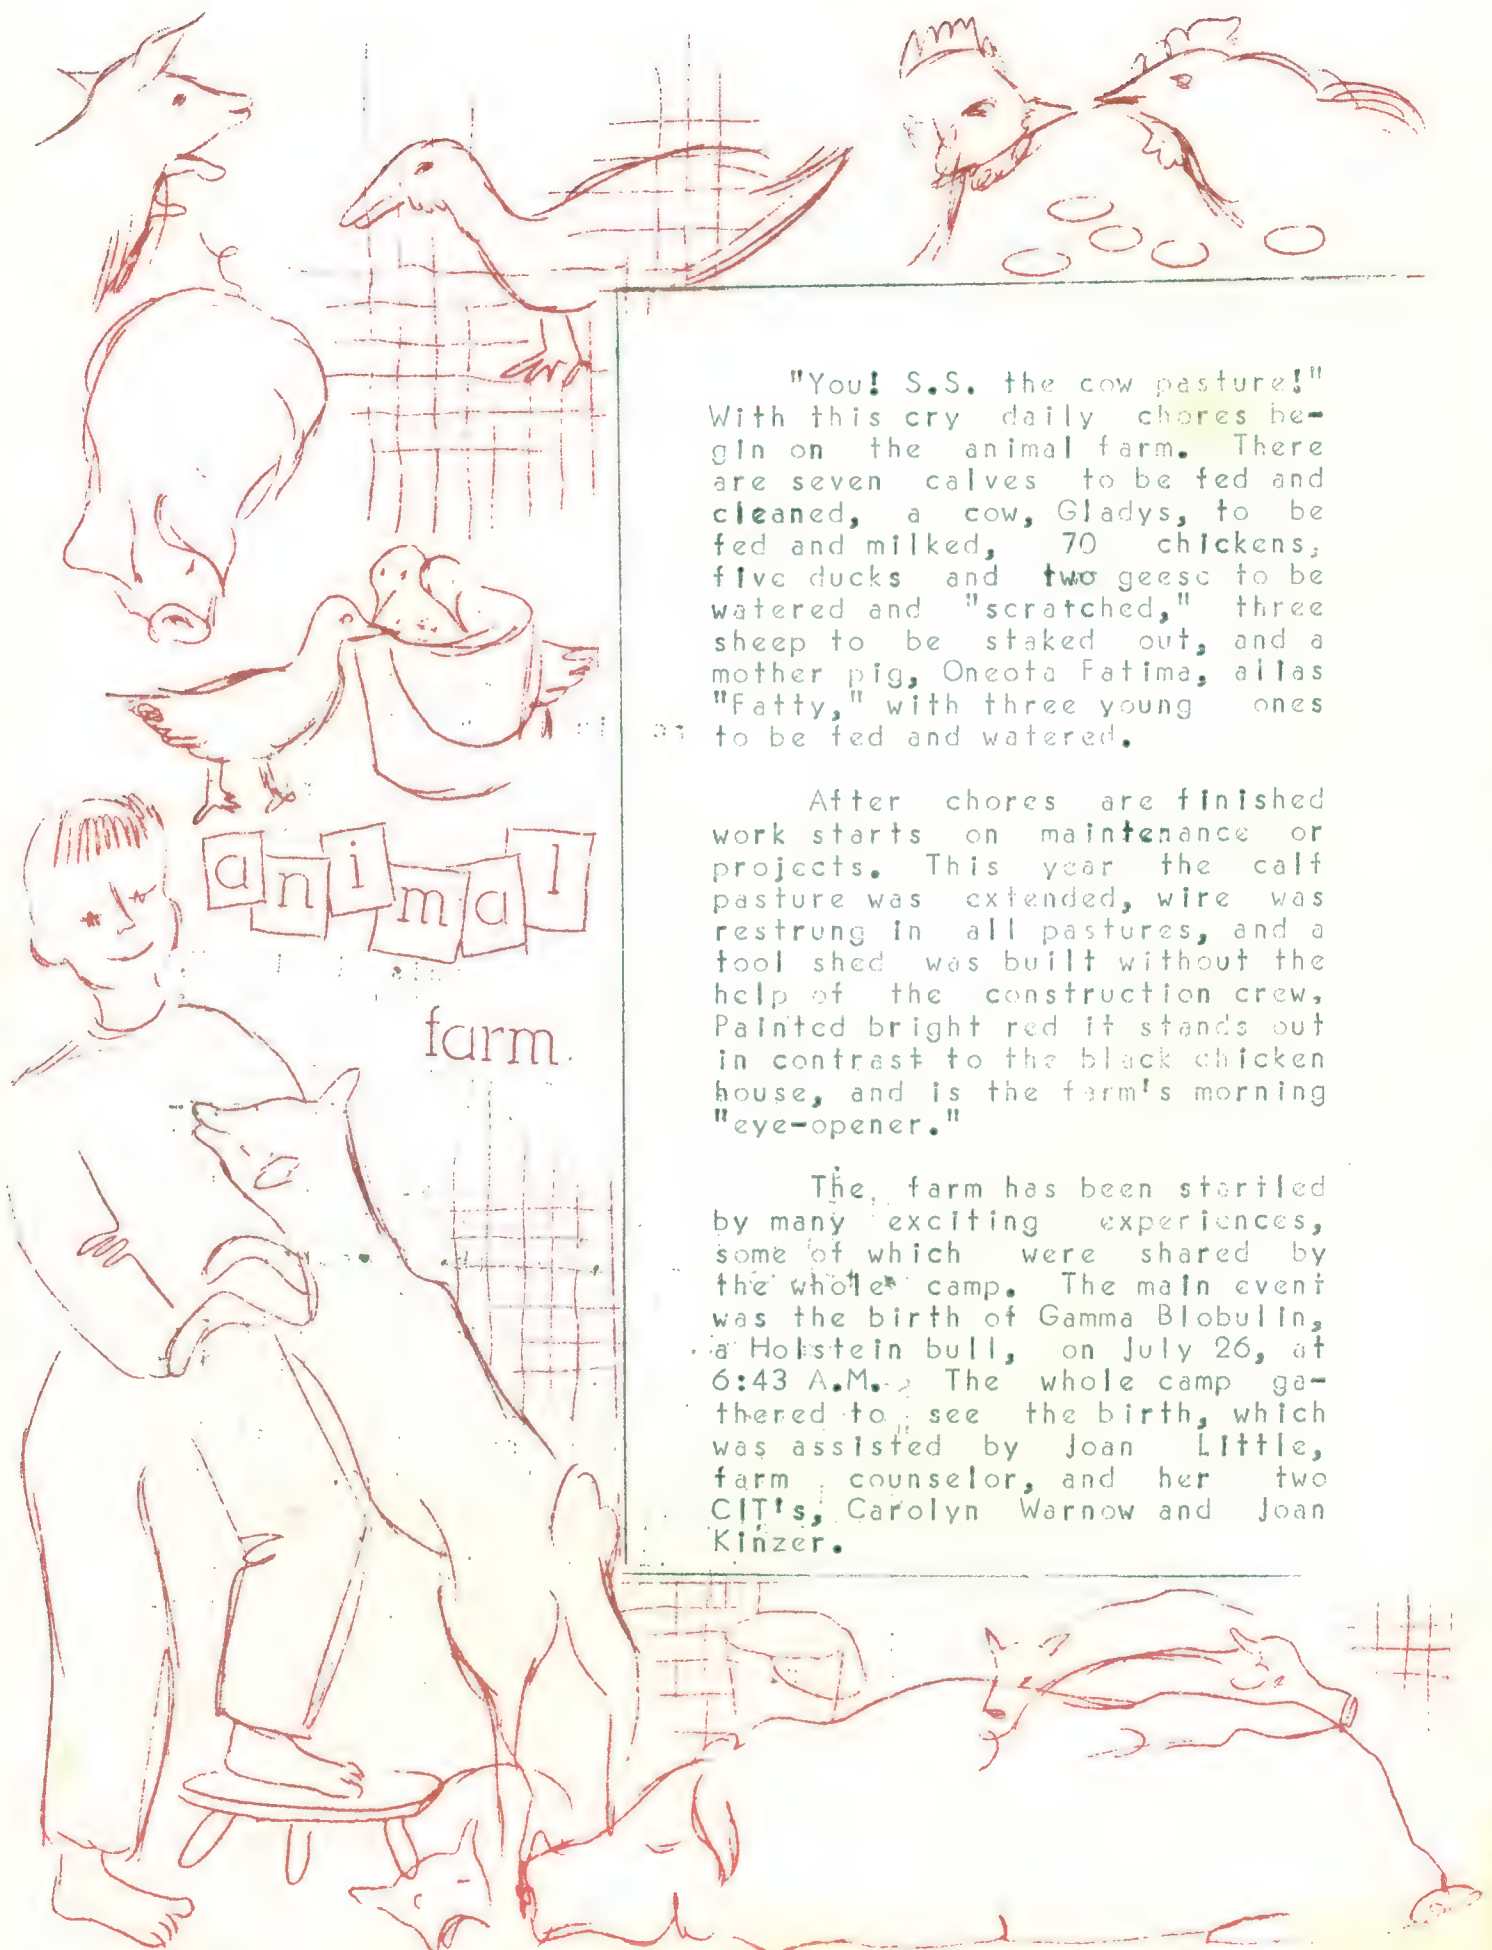 animal
farm.
"You! S.S. the cow pasture!"
With this cry daily chores be-
gin on the animal farm. There
are seven calves to be fed and
cleaned, a cow, Gladys, to be
fed and milked, 70 chickens,
five ducks and two geese to be
watered and "scratched," three
sheep to be staked out, and a
mother pig, Oneota Fatima, alias
"Fatty," with three young ones
to be fed and watered.
After chores are finished
work starts on maintenance or
projects. This year the calf
pasture was extended, wire was
restrung in all pastures, and a
tool shed was built without the
help of the construction crew,
Painted bright red it stands out
in contrast to the black chicken
house, and is the farm's morning
"eye-opener."
The farm has been startled
by many exciting experiences,
some of which were shared by
the whole camp. The main event
was the birth of Gamma Blobulin,
a Holstein bull, on July 26, at
6:43 A.M. The whole camp ga-
thered to see the birth, which
was assisted by Joan Little,
farm counselor, and her two
CIT's, Carolyn Warnow and Joan
Kinzer.